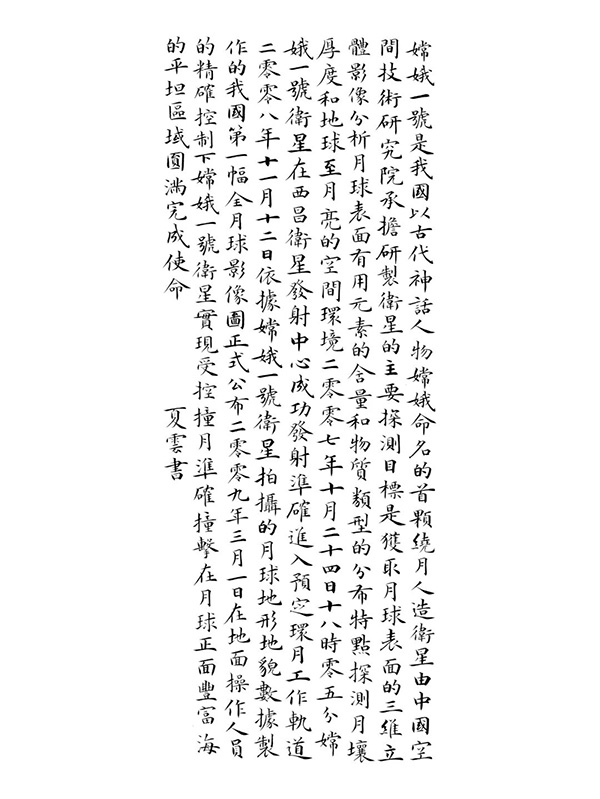 嫦娥一號是我國以古代神話人物嫦娥命名的首顆繞月人造衛星由中國空
間技術研究院承擔研製衛星的主要探測目標是獲取月球表面的三維立
體影像分析月球表面有用元素的含量和物質類型的分布特點探測月壤
厚度和地球至月亮的空間環境二零零七年十月二十四日十八時零五分嫦
娥一號衛星在西昌衛星發射中心成功發射準確進入預定環月工作軌道
二零零八年十一月十二日依據嫦娥一號衛星拍攝的月球地形地貌數據製
作的我國第一幅全月球影像圖正式公布二零零九年三月一日在地面操作人員
的精確控制下嫦娥一號衛星實現受控撞月準確撞擊在月球正面豐富海
的平坦區域圓滿完成使命
夏雲書